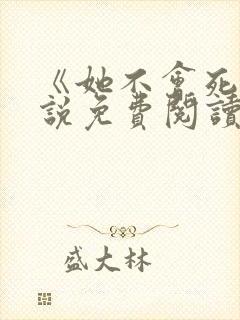 《她不會死
說免費閱讀
盛大林